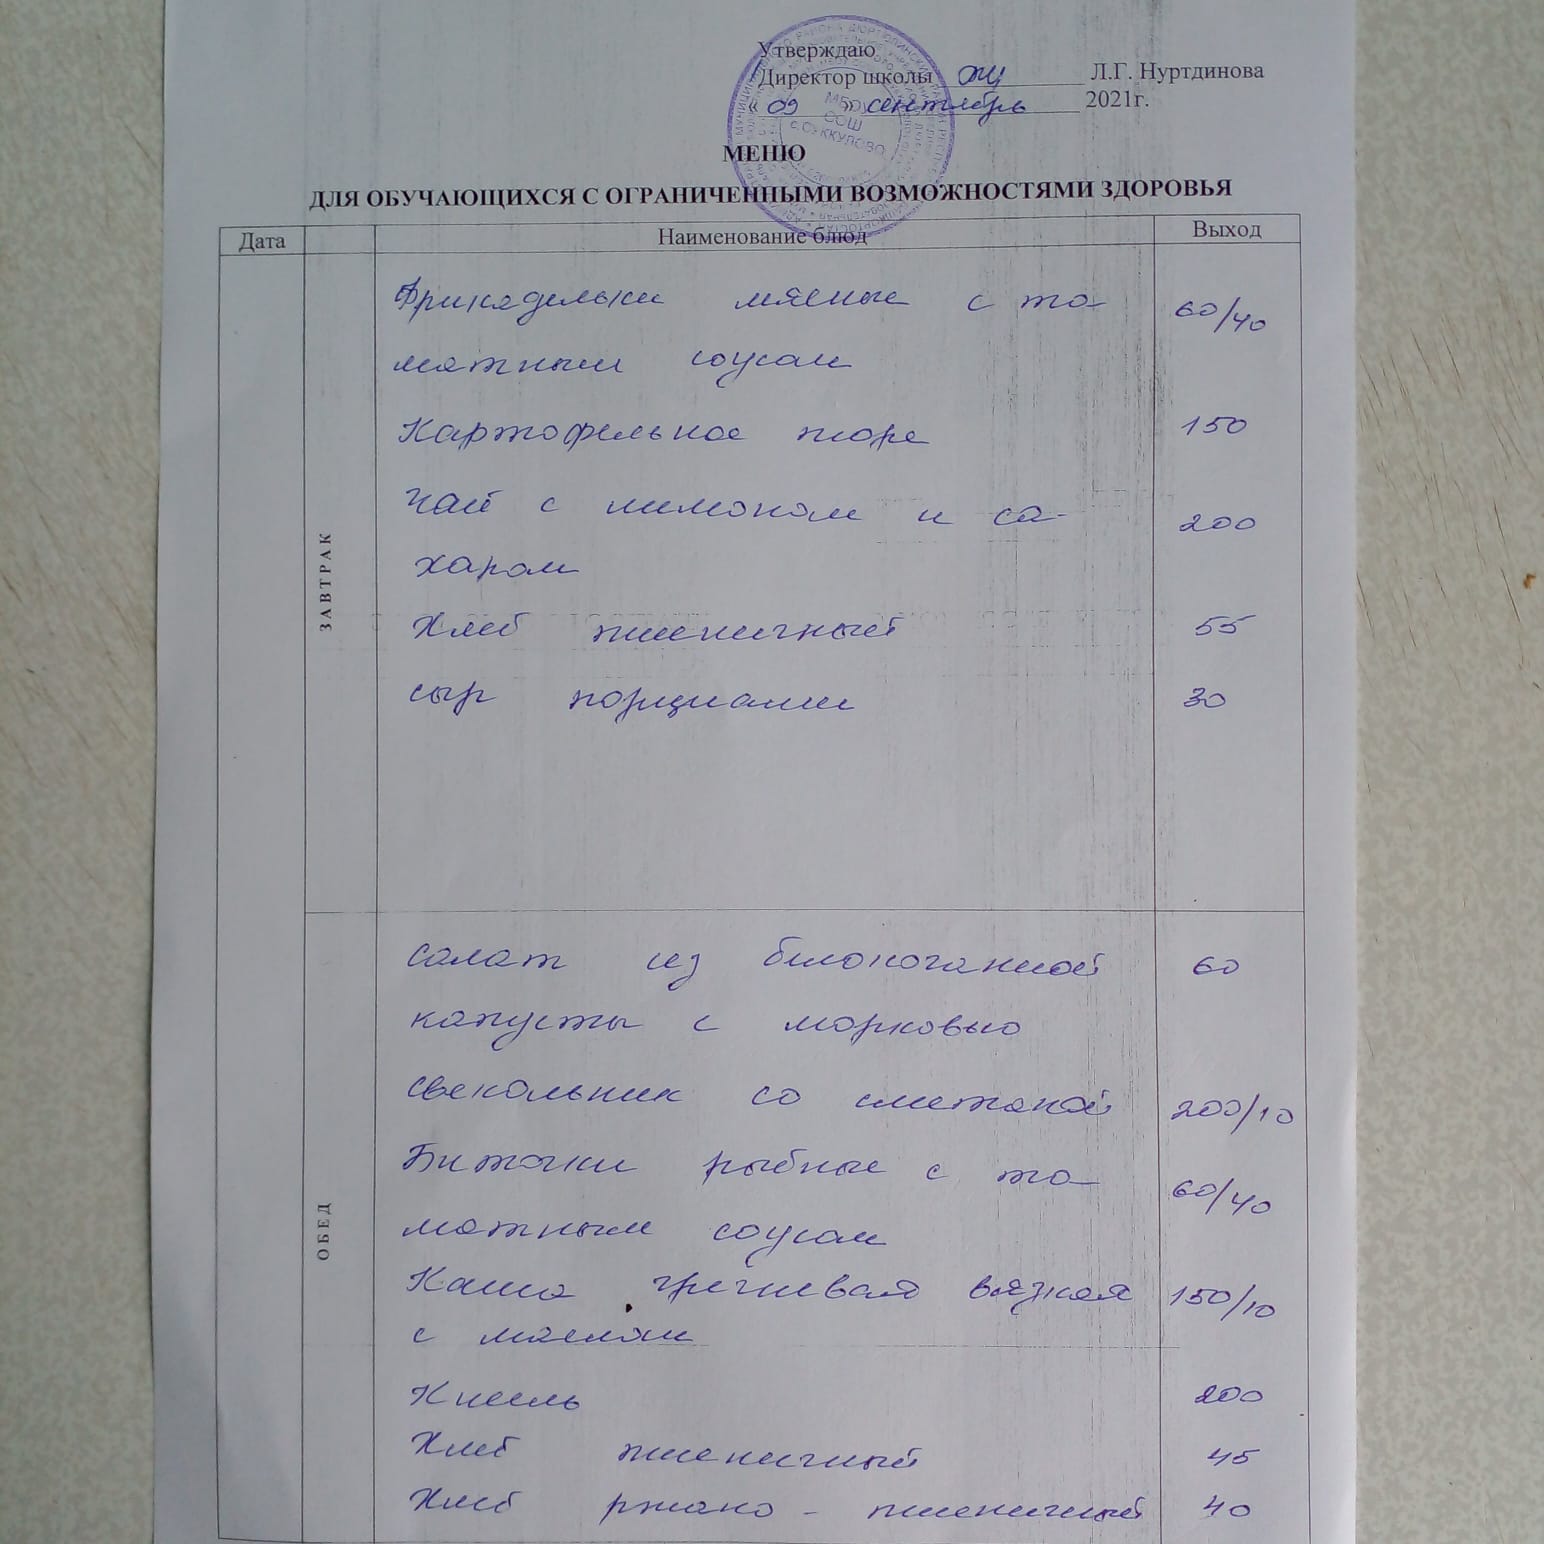 Утверждаю
Директор школы Л.Г. Нуртдинова
« 09 » сентябрь 2021г.
МБОУ
СОШ
с.СУККУЛОВО
МЕНЮ
ДЛЯ ОБУЧАЮЩИХСЯ С ОГРАНИЧЕННЫМИ ВОЗМОЖНОСТЯМИ ЗДОРОВЬЯ
Дата Наименование блюд Выход
ЗАВТРАК
Фрикадельки мясные с то- 60/40
матным соусам
Картофельное пюре 150
Чай с лимоном и са- 200
харом
Хлеб пшеничный 55
сыр порциами 30
ОБЕД
салат из белокочанной 60
капусты с морковью
свекольник со сметаной 200/10
Биточки рыбные с то- 60/40
матным соусам
Каша гречневая вязкая 150/10
с маслом
Кисель 200
Хлеб пшеничный 45
Хлеб ржано - пшеничный 40